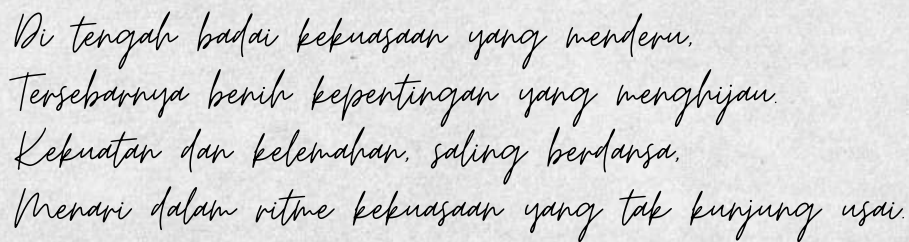 Di tengah badai kekuasaan yang menderu,
Tersebarnya benih kepentingan yang menghijau.
Kekuatan dan kelemahan, saling berdansa,
Menari dalam ritme kekuasaan yang tak kunjung usai.